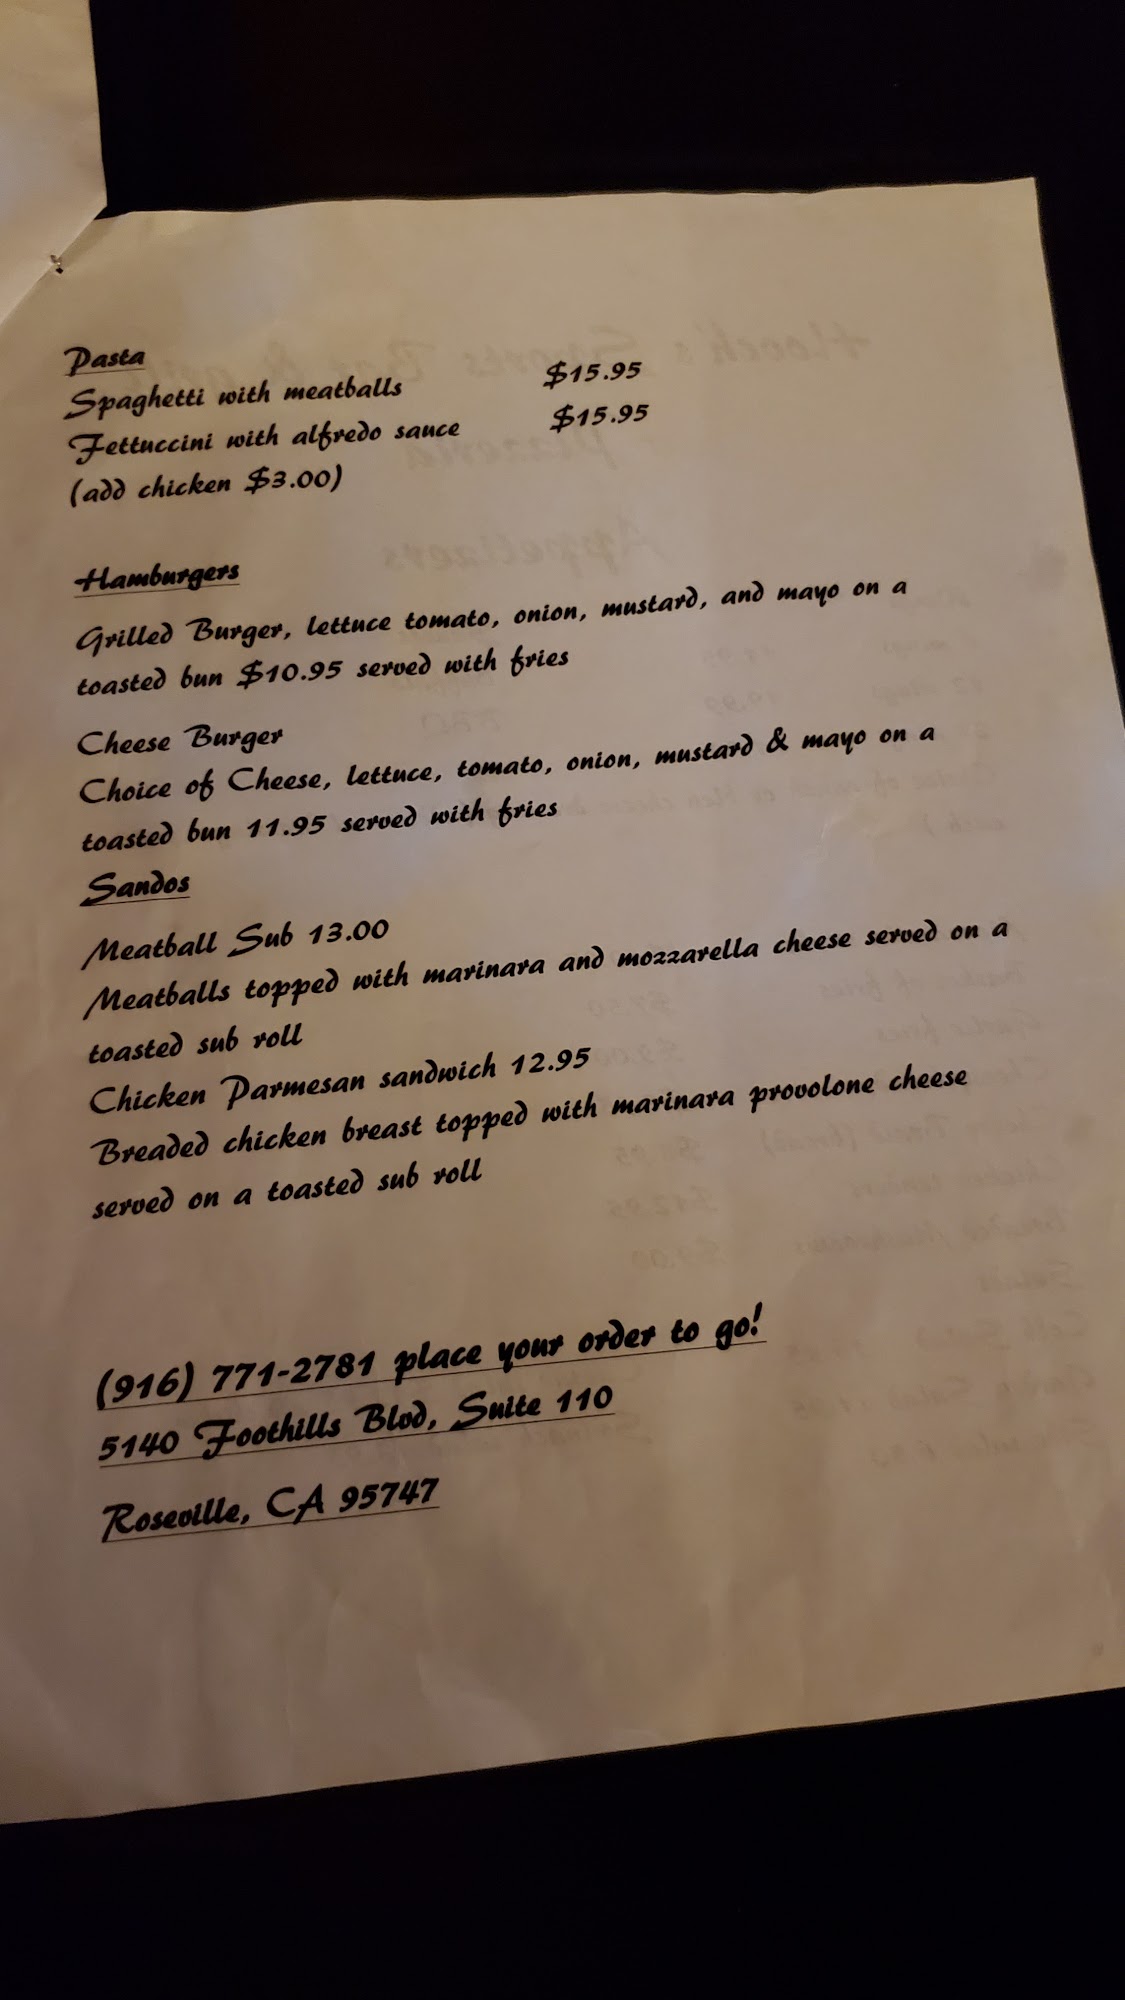 Pasta
Spaghetti with meatballs $15.95
Fettuccini with alfredo sauce $15.95
(add chicken $3.00)
Hamburgers
Grilled Burger, lettuce tomato, onion, mustard, and mayo on a
toasted bun $10.95 served with fries
Cheese Burger
Choice of Cheese, lettuce, tomato, onion, mustard & mayo on a
toasted bun 11.95 served with fries
Sandos
Meatball Sub 13.00
Meatballs topped with marinara and mozzarella cheese served on a
toasted sub roll
Chicken Parmesan sandwich 12.95
Breaded chicken breast topped with marinara provolone cheese
served on a toasted sub roll
(916) 771-2781 place your order to go!
5140 Foothills Blvd, Suite 110
Roseville, CA 95747